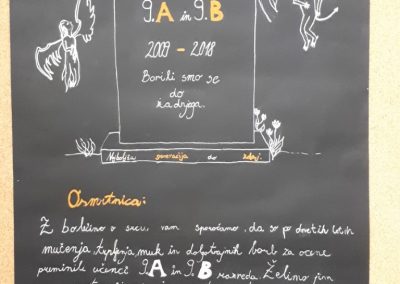 9.A in 9.B
2009 - 2018
Borili smo se
do
zadnjega.
Najboljša generacija do sedaj.
Osmrtnica:
Z bolečino v srcu vam sporočamo, da so po devetih letih
mučenja, trpljenja, muk in dolgotrajnih borb za ocene
preminili učenci 9.A in 9.B razreda. Želimo jim